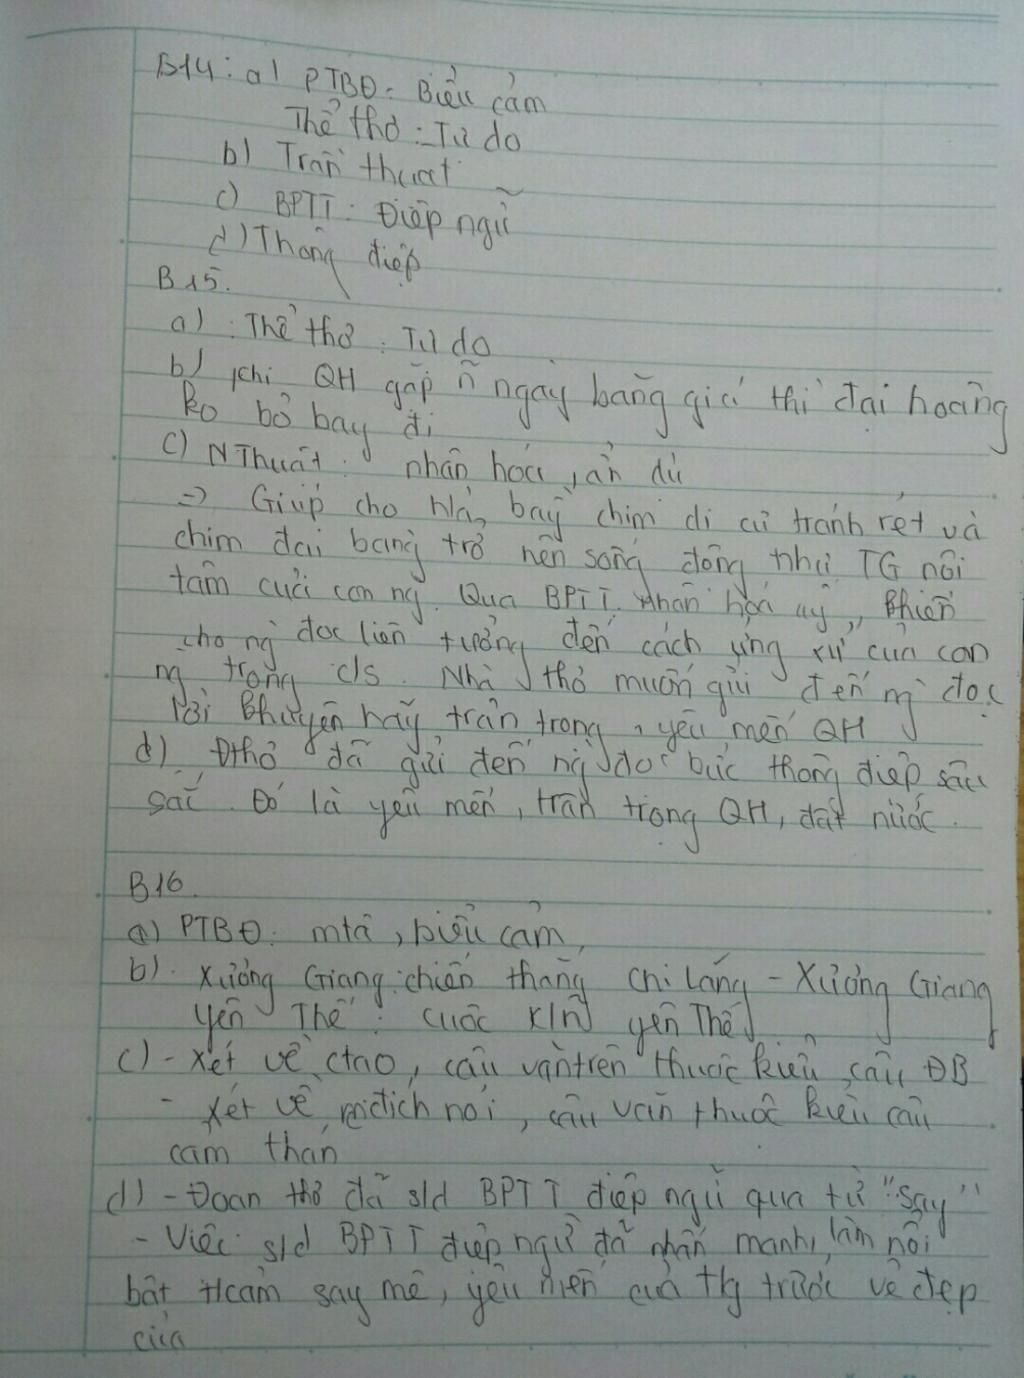 B14: a) PTBĐ: Biểu cảm
Thể thơ: Tự do
b) Trần thuật
c) BPTT: Điệp ngữ
d) Thông điệp
B15.
a) Thể thơ: Tự do
b) khi QH gặp ~ ngày băng giá thì đại hoàng
ko bỏ bay đi
c) NThuật: nhân hoá, ẩn dụ
=> Giúp cho h/a bầy chim di cư tránh rét và
chim đại bàng trở nên sống động như TG nội
tâm của con ng. Qua BPTT nhân hoá ấy, khiến
cho ng đọc liên tưởng đến cách ứng xử của con
ng trong c/s. Nhà thơ muốn gửi đến ng đọc
lời khuyên hãy trân trọng, yêu mến QH
d) Đthơ đã gửi đến ng đọc bức thông điệp sâu
sắc. Đó là yêu mến, trân trọng QH, đất nước.
B16.
a) PTBĐ: mtả, biểu cảm
b) Xương Giang: chiến thắng Chi Lăng - Xương Giang
Yên Thế: cuộc k/n Yên Thế
c) - Xét về ctạo, câu văn trên thuộc kiểu câu ĐB
- Xét về mđích nói, câu văn thuộc kiểu câu
cảm thán
d) - Đoạn thơ đã s/d BPTT điệp ngữ qua từ "say"
- Việc s/d BPTT điệp ngữ đã nhấn mạnh, làm nổi
bật tcảm say mê, yêu mến của tg trước vẻ đẹp
của